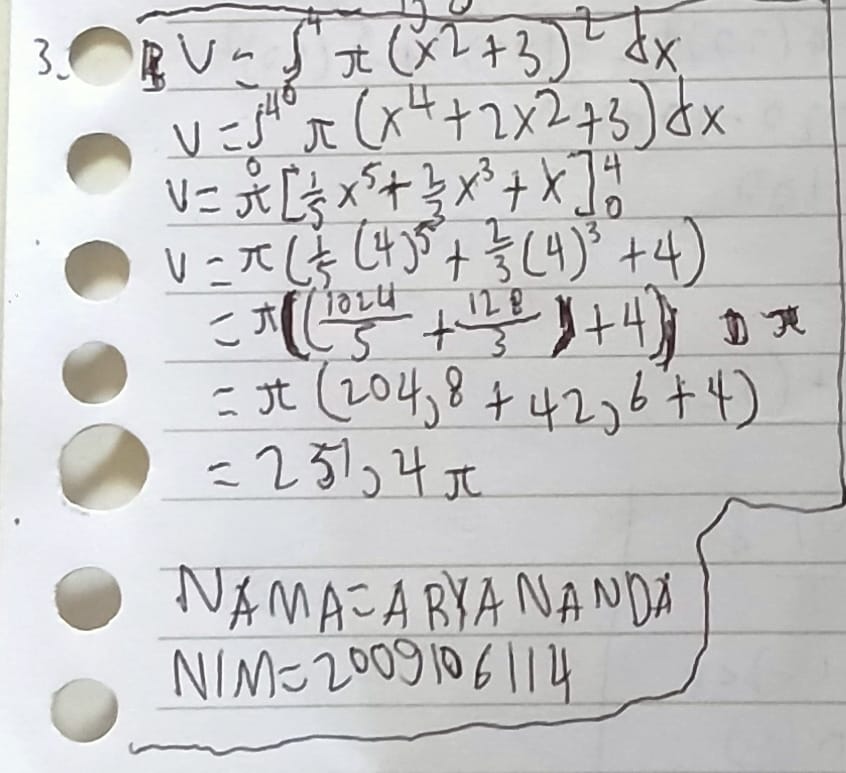 3. V = ∫₀⁴ π (x2 + 3)² dx
V = ∫₀⁴ π (x⁴ + 2x2 + 3) dx
V = π [1/5 x⁵ + 2/3 x³ + x]₀⁴
V = π (1/5 (4)⁵ + 2/3 (4)³ + 4)
= π ((1024/5 + 128/3) + 4)) π
= π (204,8 + 42,6 + 4)
= 251,4 π
NAMA = ARYA NANDA
NIM = 2009106114